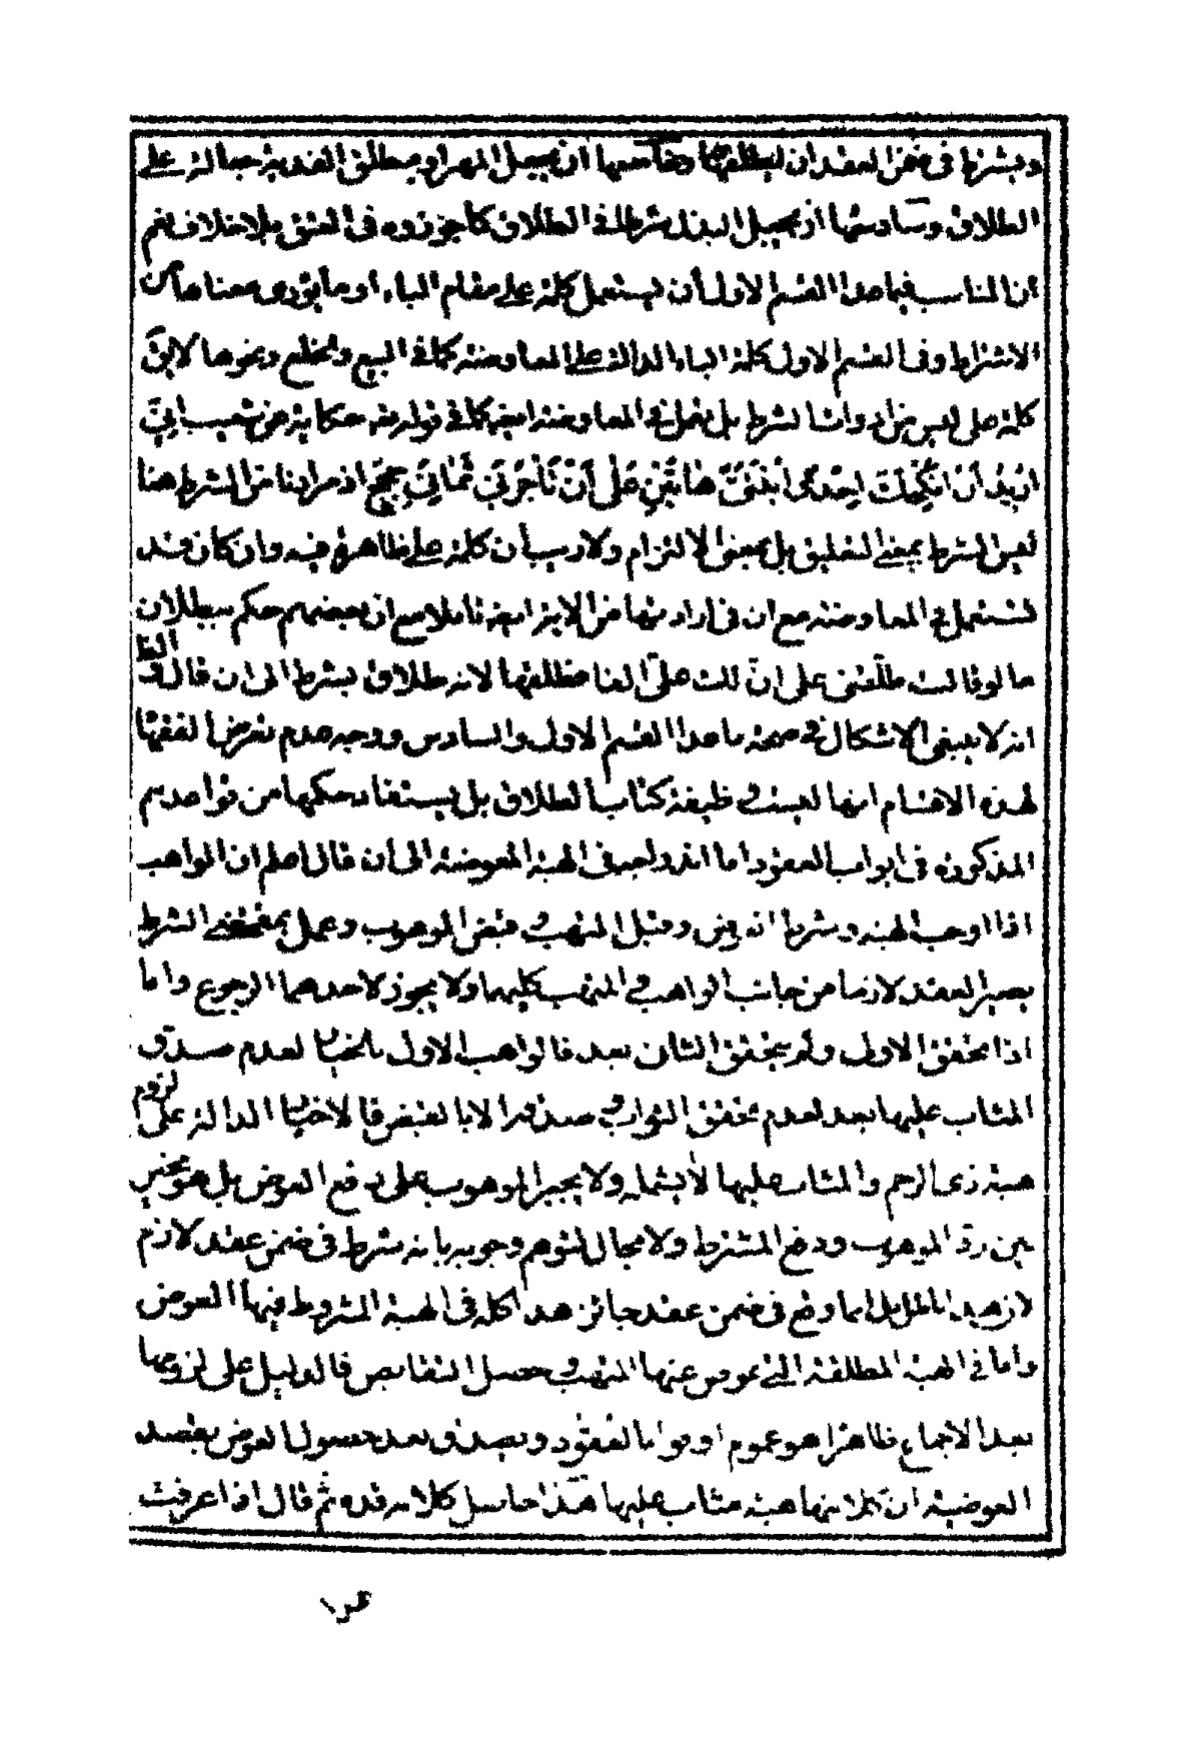 ويشترط فى ضمن العقد ان يطلقها وخامسها ان يجعل المهر او مطلق الفدية جعالة على
الطلاق وسادسها ان يجعل البذل شرطا فى الطلاق كما جوزوه فى العتق بلا خلاف نعم
ان المناسب فيما عدا القسم الاول أن يستعمل كلمة على مقام الباء او ما يؤدى معناها من
الاشتراط وفى القسم الاول كلمة الباء الدالة على المعاوضة كما فى البيع والخلع ونحوها لا لانّ
كلمة على ليس من ادوات الشرط بل يستعمل فى المعاوضة ايضا كما فى قوله تعالى حكاية عن شعيب انِّي
اُرِيدُ أَنْ اُنْكِحَكَ اِحْدَى ابْنَتَيَّ هَاتَيْنِ عَلَى أَنْ تَأْجُرَنِي ثَمَانِيَ حِجَجٍ اذ مرادنا من الشرط هنا
ليس الشرط بمعنى التعليق بل بمعنى الالتزام ولا ريب أن كلمة على ظاهرة فيه وان كان قد
تستعمل فى المعاوضة مع ان فى ارادتها من الاية ايضا تاملا مع ان بعضهم حكم ببطلان
ما لو قالت طلّقنى على انّ لك علىّ الفا فطلقها لانه طلاق بشرط الى ان قال الظ
انه لا ينبغى الاشكال فى صحة ما عدا القسم الاول والسادس ووجه عدم تعرض الفقهاء
لهذه الاقسام انها ليست وظيفة كتاب الطلاق بل يستفاد حكمها من قواعدهم
المذكورة فى ابواب العقود اما انه راجع فى الهبة المعوضة الى أن قال اعلم ان الواهب
اذا اوجب الهبة وشرط وقبل المتهب قبض الموهوب وعمل بمقتضى الشرط
يصير العقد لازما من جانب الواهب والمتهب كليهما ولا يجوز لاحدهما الرجوع واما
اذا تحقق الاول ولم يتحقق الثانى بعد فالواهب الاول بالخيار لعدم صدق
المثاب عليها بعد لعدم تحقق الثواب صدق الا بالقبض فالاخبار الدالة على لزوم
هبة ذى الرحم والمثاب عليها لا يشمله ولا يجبر الموهوب على دفع العوض بل هو مخير
بين ردّ الموهوب ودفع المشترط ولا مجال لتوهم وجوبه بانه شرط فى ضمن عقد لازم
انما وقع فى ضمن عقد جائز هذا كله فى الهبة المشروط فيها العوض
واما فى الهبة المطلقة التى عوض عنها المتهب وحصل التقابض فالدليل على لزومها
بعد الاجماع ظاهرا هو عموم اوفوا بالعقود ويصدق بعد حصول العوض بقصد
العوضية ان كلا منها هبة مثاب عليها هذا حاصل كلامه قده ثم قال اذا عرفت